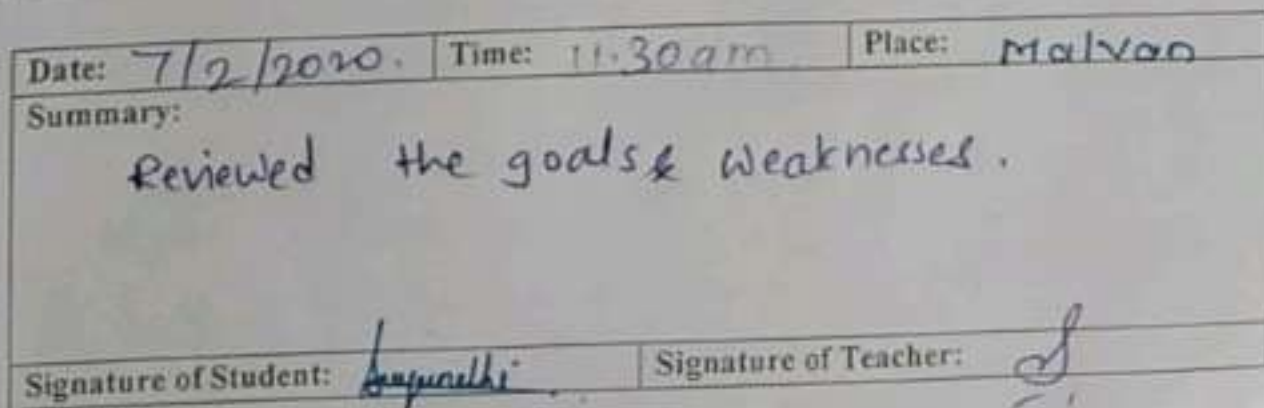 Date: 7/2/2020. Time: 11.30am Place: Malvan
Summary:
Reviewed the goals & weaknesses.
Signature of Student: Signature of Teacher: